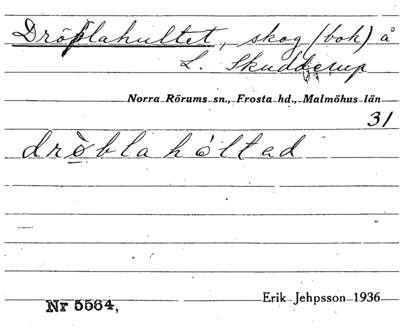 Dröplahultet, skog (bok) å
L. Skudderup
Norra Rörums sn., Frosta hd., Malmöhus län
31
drò̱blahóltad
Nr 5564,
Erik Jehpsson 1936